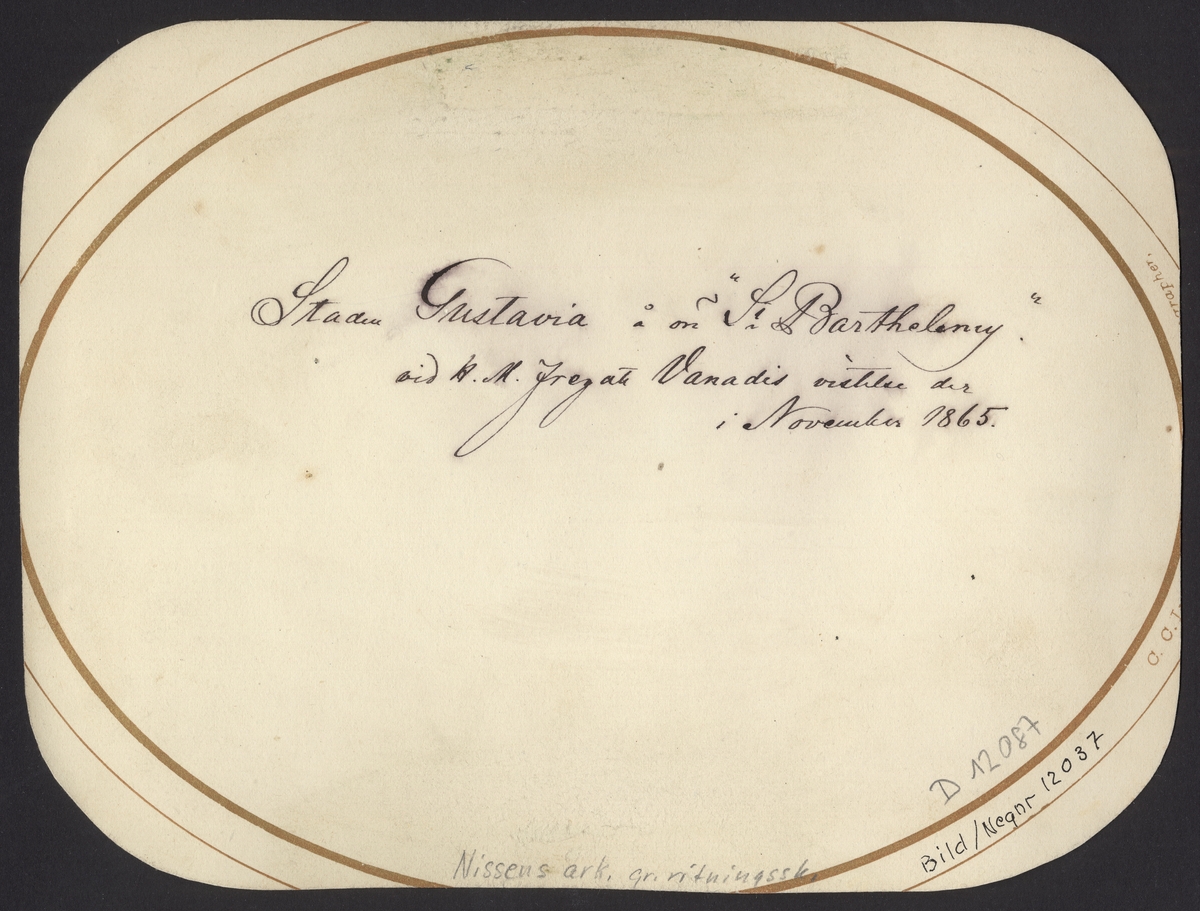 Staden Gustavia å ön "St Barthelemy"
vid K. M. fregatt Vanadis vistelse der
i November 1865.
D 12087
Bild/Negnr 12037
Nissens ark. gr. ritningssk.
C. C.
rapher.